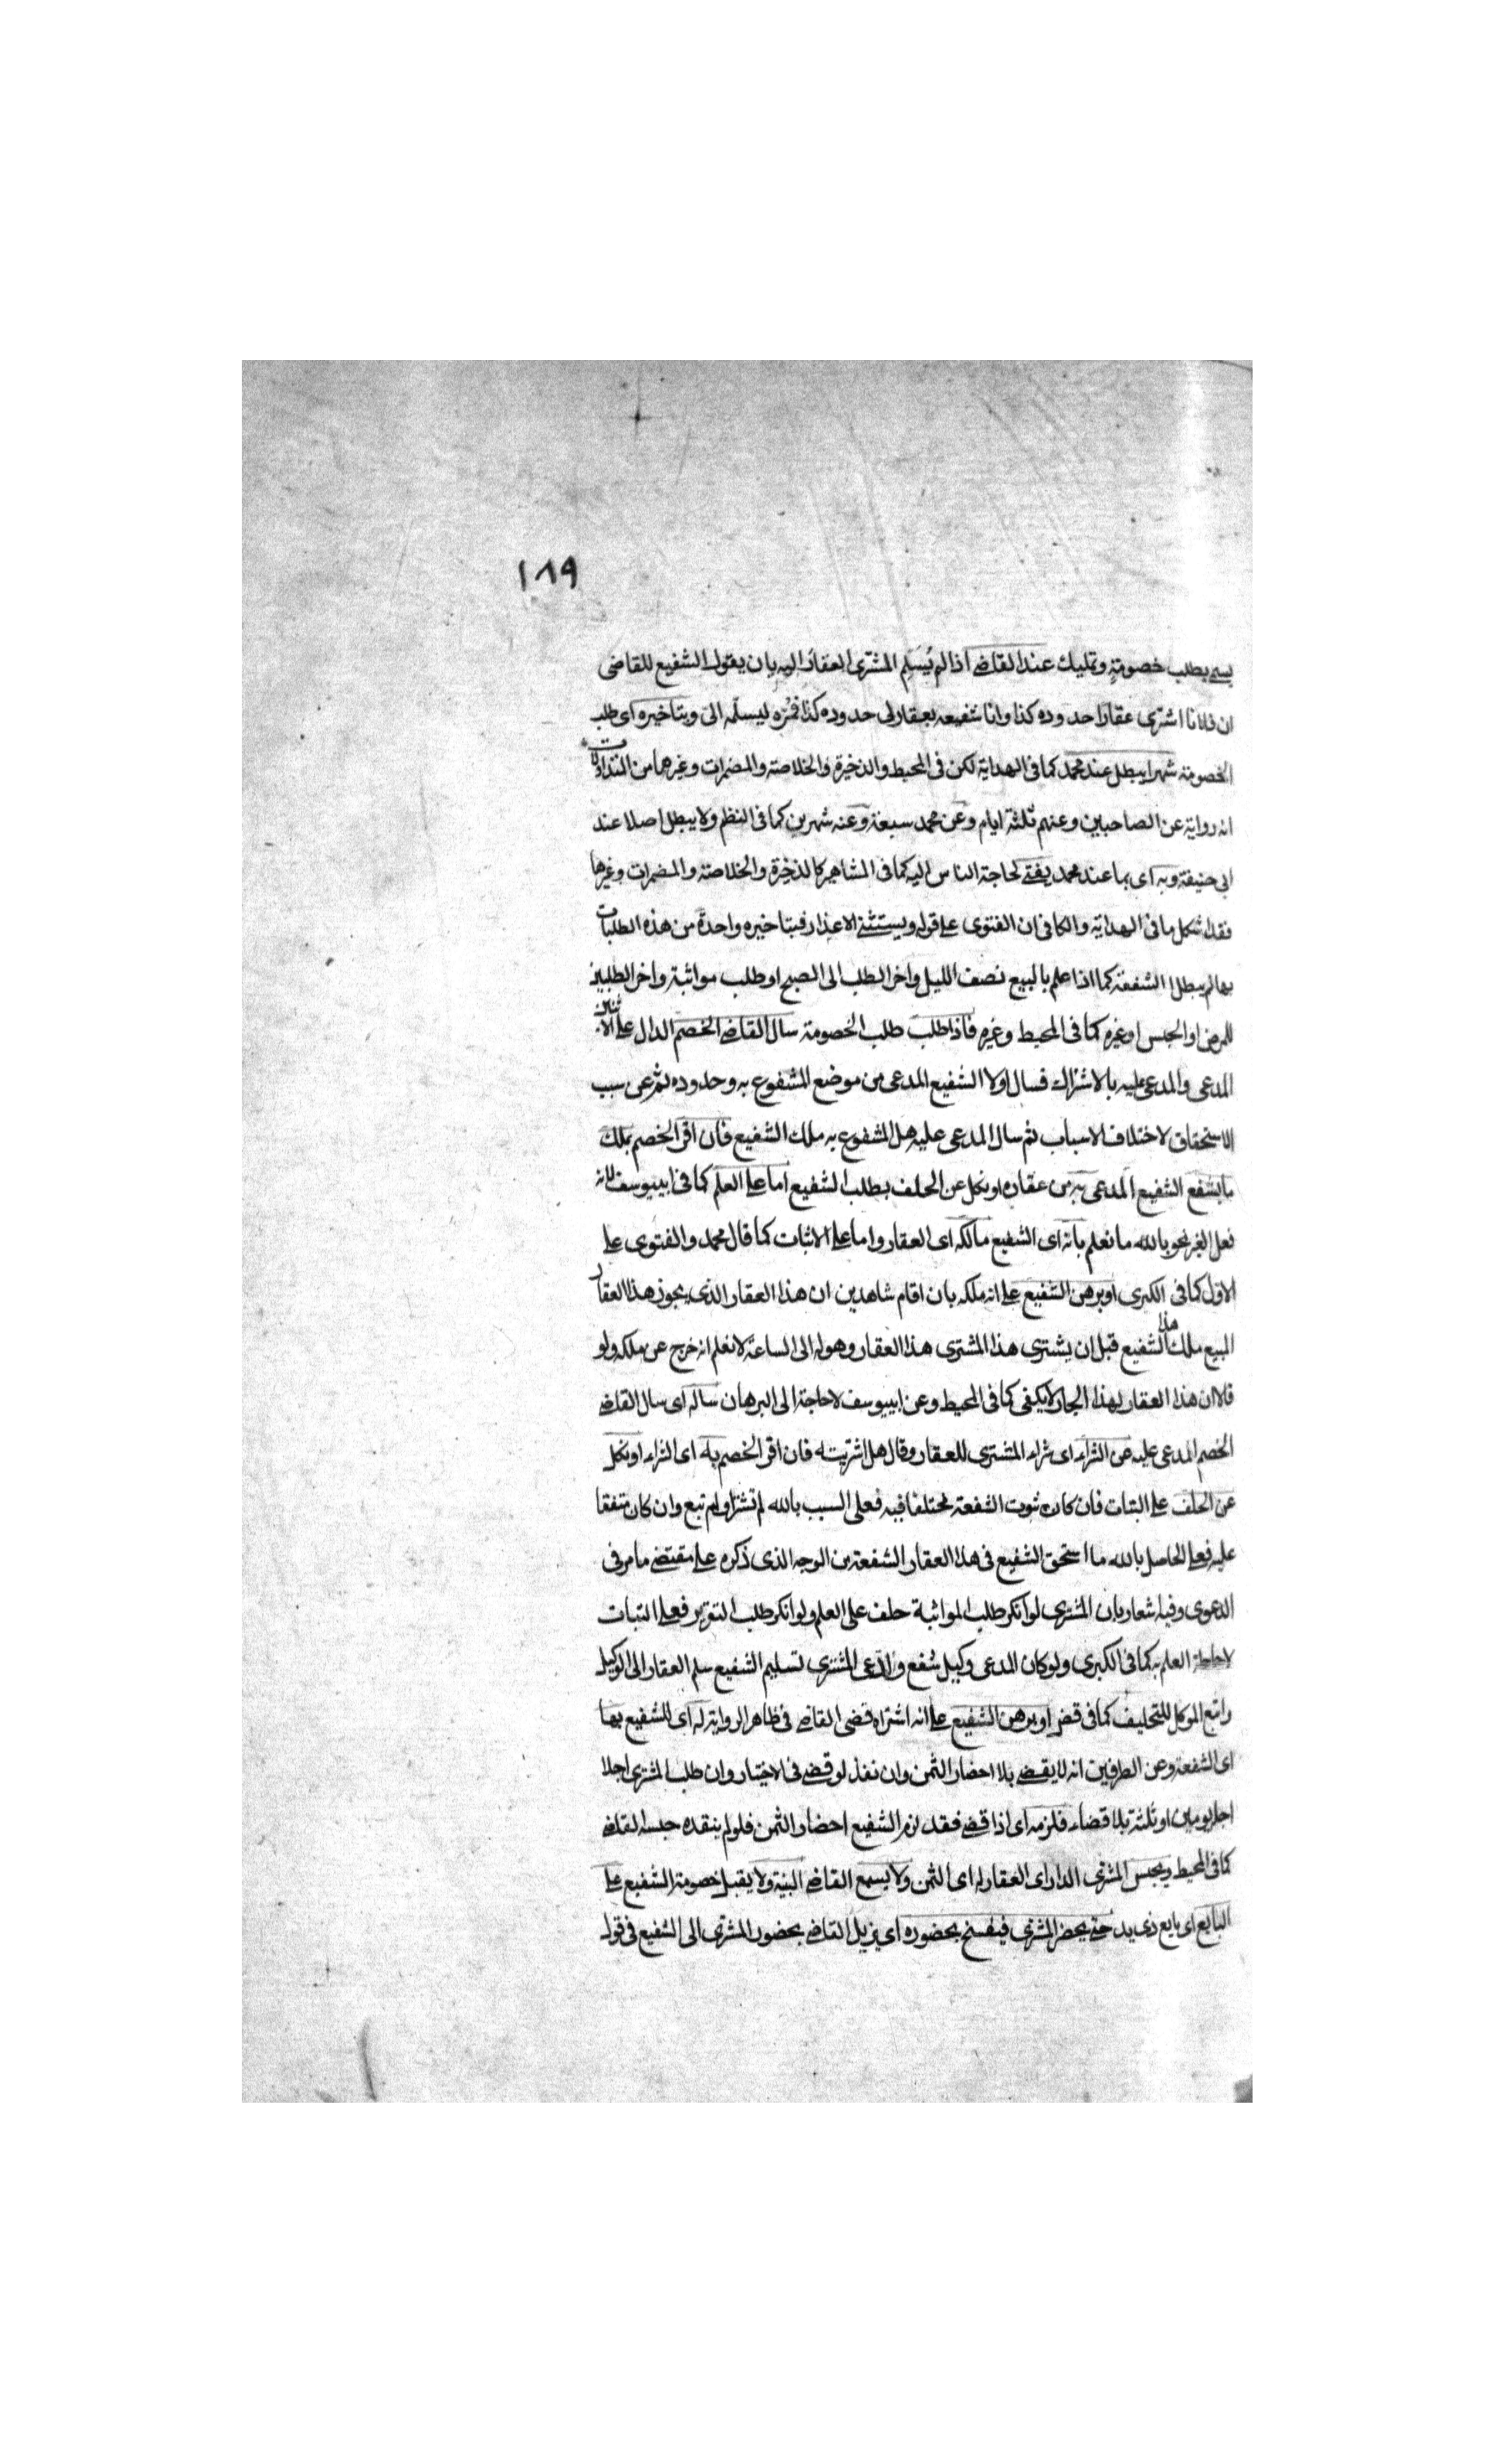 ١٨٩
يسمى بطلب خصومة وتمليك عند القاضى اذا لم يُسَلِم المشترى العقارَ اليه بان يقول الشفيع للقاضى
ان فلانا اشترى عقارا حدوده كذا وانا شفيعه بعقار لى حدوده كذا فمُرْه ليسلّمه الىّ وبتاخيره اى طلب
الخصومة شهرا يبطل عند محمد كما فى الهداية لكن فى المحيط والذخيرة والخلاصة والمضمرات وغيرها من المتداولات
انه رواية عن الصاحبين وعنهم ثلثة ايام وعن محمد سبعة وعنه شهرين كما فى النظم ولا يبطل اصلا عند
ابى حنيفة وبه اى بما عند محمد يفتى لحاجة الناس اليه كما فى المشاهير كالذخيرة والخلاصة والمضمرات وغيرها
فقد اشكل ما فى الهداية والكافى ان الفتوى على قوله ويستثنى الاعذار فبتاخيره واحدة من هذه الطلبات
بها لم يبطل الشفعة كما اذا علم بالبيع نصف الليل واخر الطلب الى الصبح او طلب مواثبة واخر الطلبين
للمرض او الحبس او غيره كما فى المحيط وغيره فاذا طلب طلب الخصومة سال القاضى الخصم الدال على الاثنين
المدعى والمدعى عليه بالاشتراك فسال اولا الشفيع المدعى من موضع المشفوع به وحدوده ثم عن سبب
الاستحقاق لاختلاف الاسباب ثم سال المدعى عليه هل المشفوع به ملك الشفيع فان اقر الخصم بملك
ما يشفع الشفيع المدعى به من عقاره او نكل عن الحلف بطلب الشفيع اما على العلم كما فى ابيوسف لانه
فعل الغير نحو بالله ما نعلم بانه اى الشفيع مالكه اى العقار واما على الاثبات كما قال محمد والفتوى على
الاول كما فى الكبرى او برهن الشفيع على انه ملكه بان اقام شاهدين ان هذا العقار الذى يجوز هذا العقار
المبيع ملك هذا الشفيع قبل ان يشترى هذا المشترى هذا العقار وهو له الى الساعة لا نعلم انه خرج عن ملكه ولو
قالا ان هذا العقار لهذا الجار لا يكفى كما فى المحيط وعن ابيوسف لا حاجة الى البرهان ساله اى سال القاضى
الخصم المدعى عليه عن الشراء اى شراء المشترى للعقار وقال هل اشتريته فان اقر الخصم به اى الشراء او نكل
عن الحلف على البتات فان كان ثبوت الشفعة مختلفا فيه فعلى السبب بالله لم تشترا ولم تبع وان كان متفقا
عليه فعلى الحاصل بالله ما استحق الشفيع فى هذا العقار الشفعة من الوجه الذى ذكره على مقتضى ما مر فى
الدعوى وفيه اشعار بان المشترى لو انكر طلب المواثبة حلف على العلم ولو انكر طلب التقرير فعلى البتات
لاحاطة العلم به كما فى الكبرى ولو كان المدعى وكيل شفع وادّعى المشترى تسليم الشفيع سلم العقار الى الوكيل
واتبع الموكل للتحليف كما فى قض او برهن الشفيع على انه اشتراه قضى القاضى فى ظاهر الرواية له اى للشفيع بها
اى الشفعة وعن الطرفين انه لا يقضى بلا احضار الثمن وان نفذ لو قضى فى الاختيار وان طلب المشترى اجلا
اجل يومين او ثلثة بلا قضاء فلزمه اى اذا قضى فقد لزم الشفيع احضار الثمن فلو لم ينقده حبسه القاضى
كما فى المحيط ويحبس المشترى الدار اى العقار له اى الثمن ولا يسمع القاضى البينة ولا يقبل خصومة الشفيع على
البايع اى بايع ذى يد حتى يحضر المشترى فيفسخ بحضوره اى يزيل القاضى بحضور المشترى الى الشفيع فى قوله